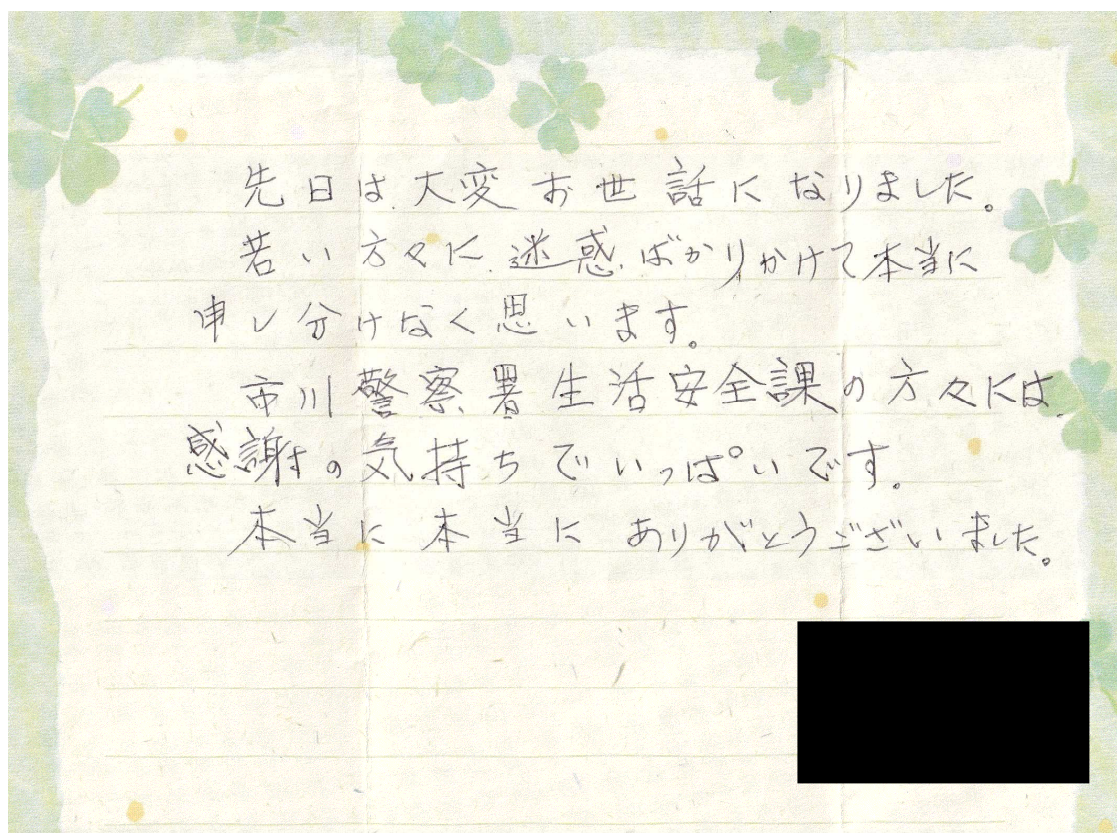 先日は大変お世話になりました。
若い方々に迷惑ばかりかけて本当に
申し分けなく思います。
市川警察署生活安全課の方々には
感謝の気持ちでいっぱいです。
本当に本当にありがとうございました。